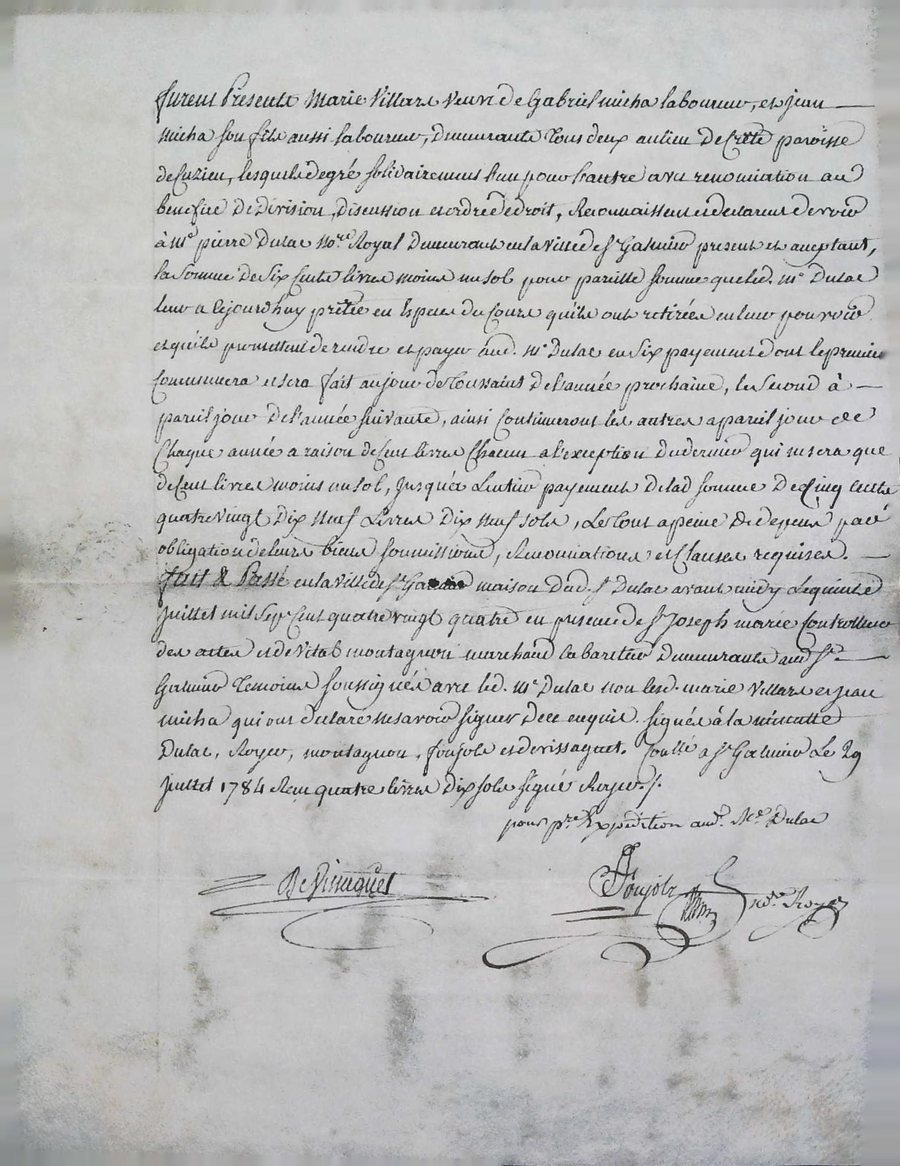 furent Présents Marie Villard veuve de Gabriel micha laboureur, et jean
micha son fils aussi laboureur, demeurants tous deux au lieu de Crité paroisse
de Cuzieu, lesquels de gré solidairement l'un pour l'autre avec renonciation au
benefice de division, discussion et ordre de droit, Reconnaissent et declarent devoir
à Me pierre Dulac Nore Royal demeurant en la ville de st Galmier present et acceptant,
la somme de six Cents livres moins un sol pour pareille somme que led. Me Dulac
leur a cejourdhuy prêtée en Especes du Cours qu'ils ont retirées en leur pouvoir
et qu'ils promettent de rendre et payer aud. Me Dulac en six payements dont le premier
Commencera et sera fait au jour de toussaints de l'année prochaine, le second à
pareil jour de l'année suivante, ainsi Continueront les autres a pareil jour de
Chaque année a raison de Cent livres Chacun a l'exception du dernier qui ne sera que
de Cent livres moins un sol, jusqu'à l'entier payement de lad somme de Cinq Cents
quatre vingt Dix Neuf Livres Dix Neuf sols, Le tout a peine de depens par
obligation de leurs biens soumissions, Renonciations et Clauses requises.
fait & Passé en la ville de st Galmier maison dud. sr Dulac avant midy Le quinze
Juillet mil sept Cent quatre vingt quatre en presence de sr Joseph marie Controlleur
des actes et de Vital montagnon marchand Cabaretier demeurants aud st
Galmier temoins soussignés avec led. Me Dulac non lesd. marie Villard et jean
micha qui ont declaré ne savoir signer de ce enquis. signés à la minutte
Dulac, Royer, montagnon, foujols et devissaguet. Conllé a st Galmier Le 29
Juillet 1784 Reçu quatre livres Dix sols signé Royer ./.
pour pre Expédition aud. Me. Dulac
DeVissaguet
Foujols
nore. Royer